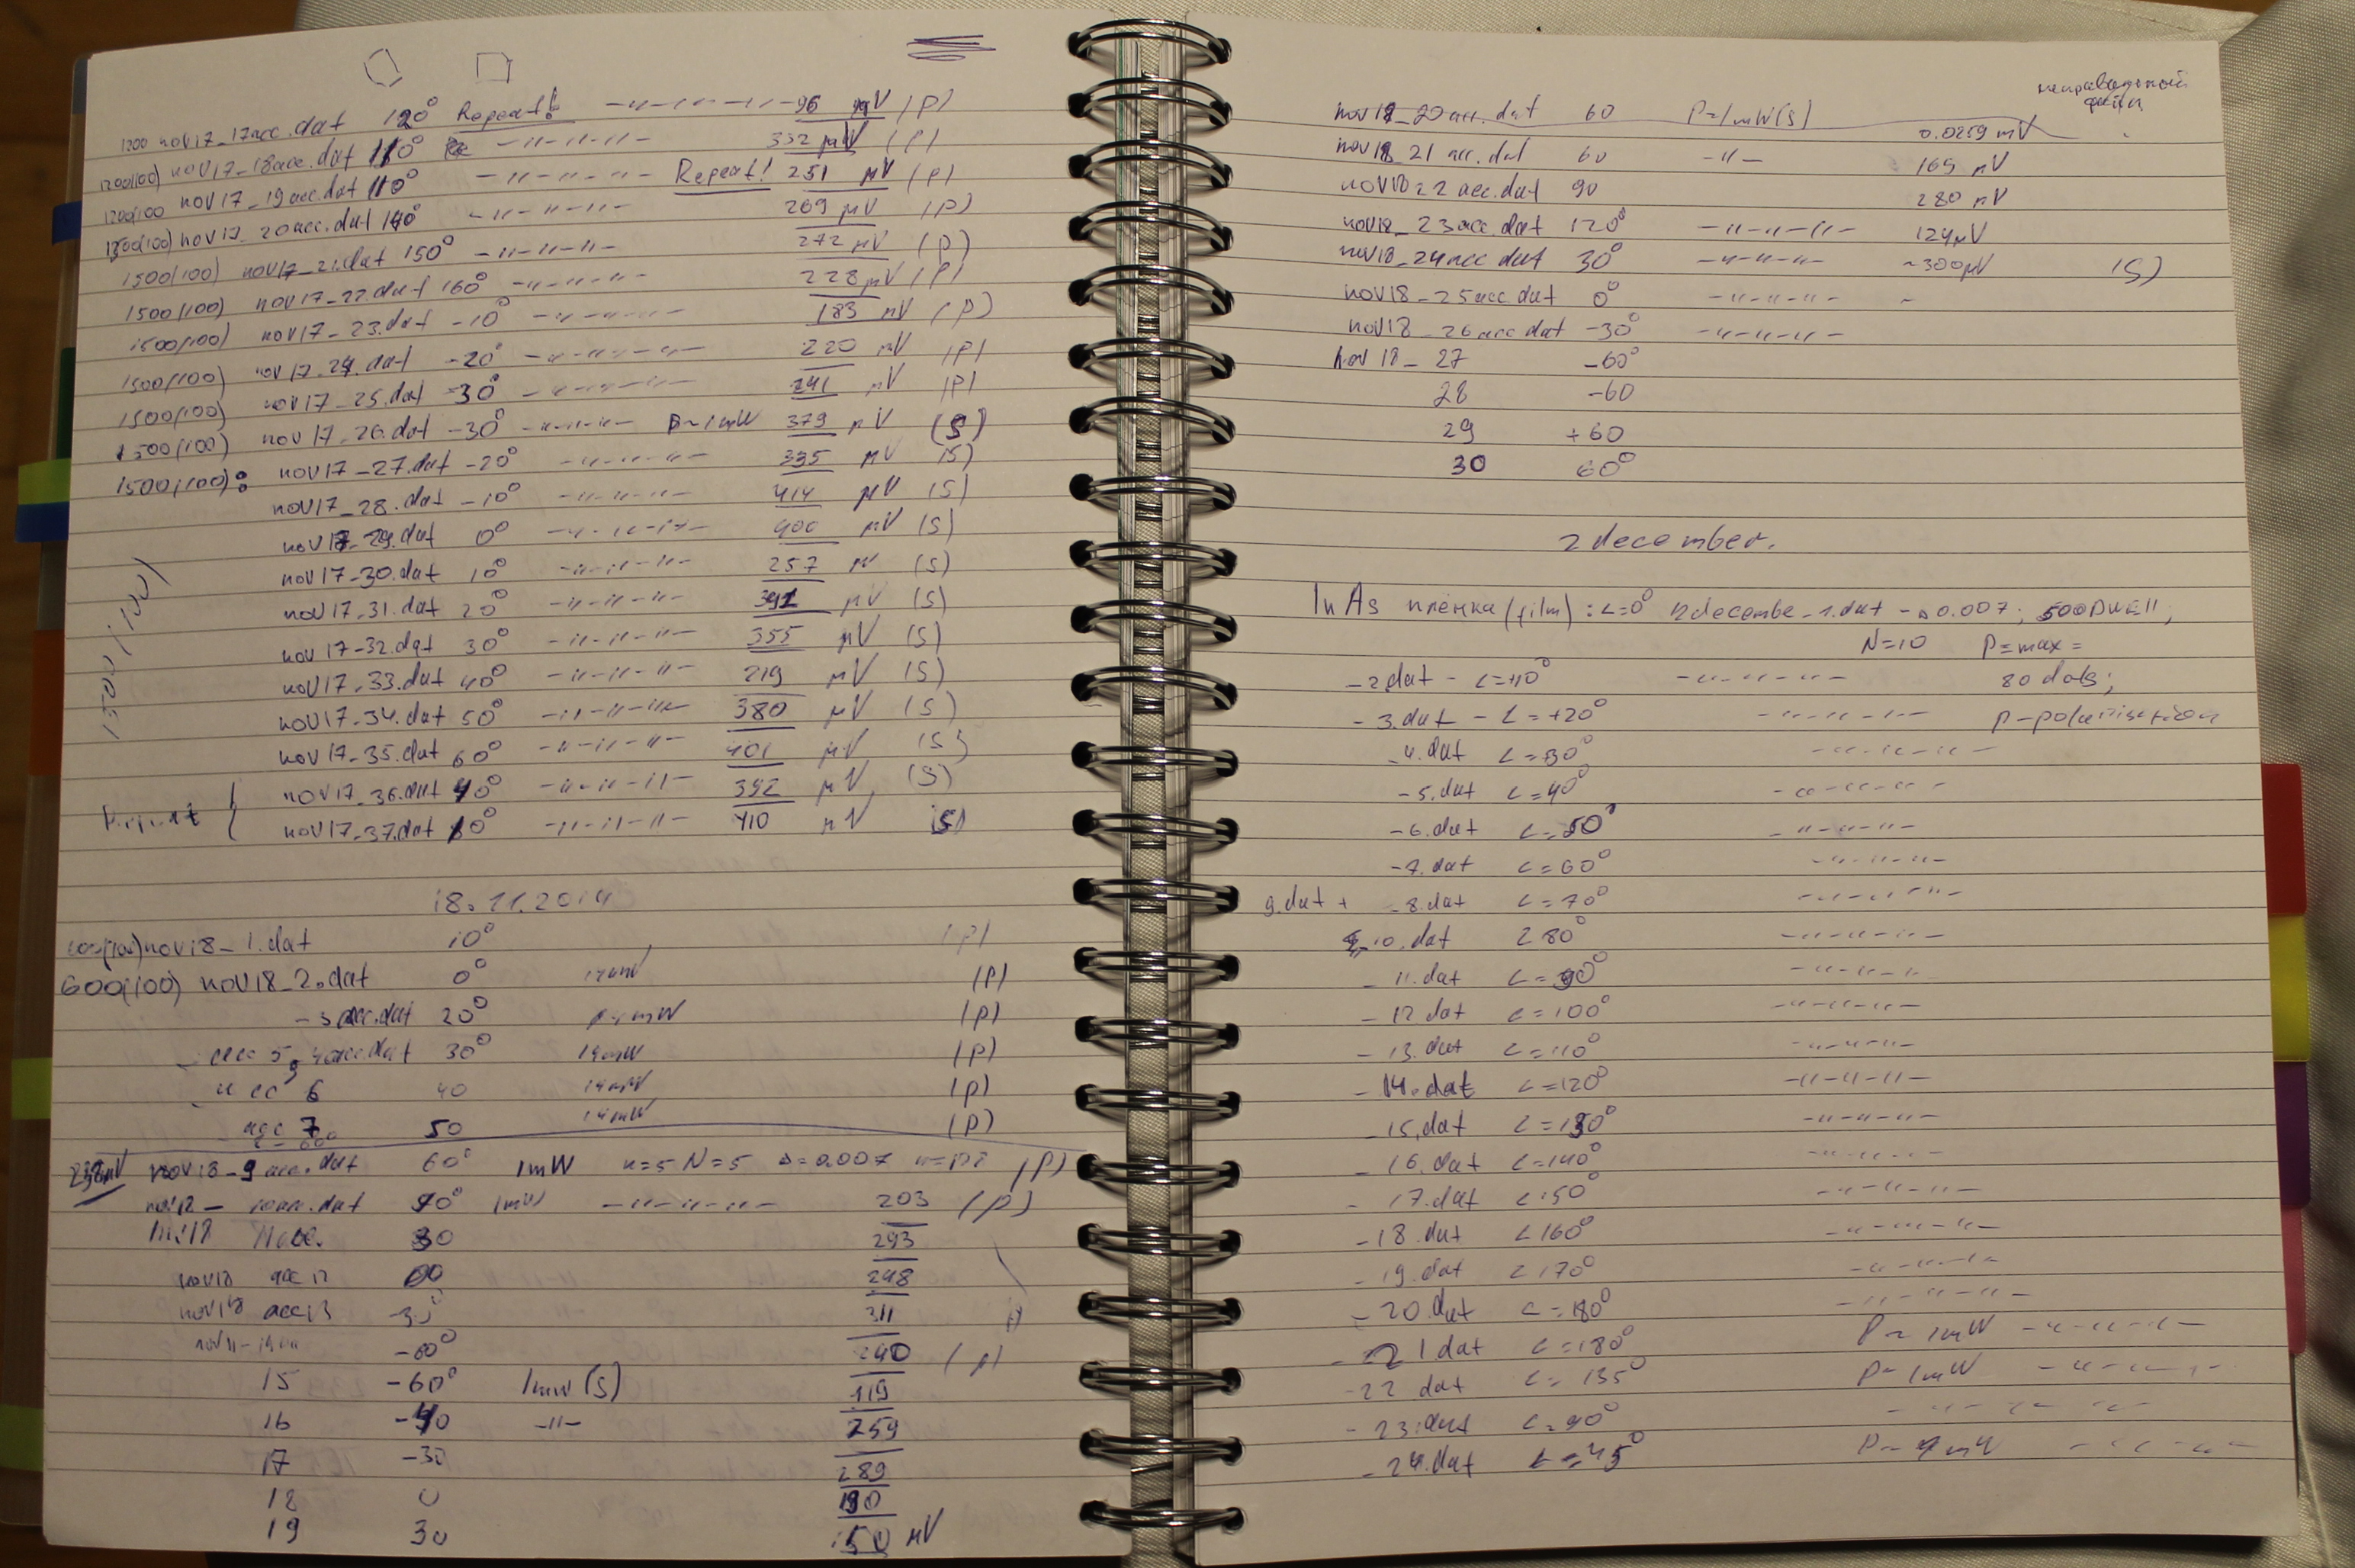 1200 nov17_17acc.dat 120° Repeat! -"-"-"- 96 μV (p)
1200(100) nov17_18acc.dat 110° -"-"-"- 332 μV (p)
1200(100 nov17_19acc.dat 110° -"-"-"- Repeat! 251 μV (p)
1500(100) nov17_20acc.dat 140° -"-"-"- 269 μV (p)
1500(100) nov17_21.dat 150° -"-"-"- 272 μV (p)
1500(100) nov17-22.dat 160° -"-"-"- 228 μV (p)
1500(100) nov17-23.dat -10° -"-"-"- 183 μV (p)
1500(100) nov17-24.dat -20° -"-"-"- 220 μV (p)
1500(100) nov17-25.dat -30° -"-"-"- 241 μV (p)
1500(100) nov17-26.dat -30° -"-"-"- P~1mW 379 μV (S)
1500(100): nov17-27.dat -20° -"-"-"- 335 μV (S)
nov17_28.dat -10° -"-"-"- 414 μV (S)
nov17-29.dat 0° -"-"-"- 400 μV (S)
nov17-30.dat 10° -"-"-"- 257 μV (S)
nov17-31.dat 20° -"-"-"- 391 μV (S)
nov17-32.dat 30° -"-"-"- 355 μV (S)
nov17-33.dat 40° -"-"-"- 219 μV (S)
nov17-34.dat 50° -"-"-"- 380 μV (S)
nov17-35.dat 60° -"-"-"- 401 μV (S)
Repeat { nov17-36.dat 40° -"-"-"- 392 μV (S)
nov17-37.dat 10° -"-"-"- 410 μV (S)
1500(100)
18.11.2014
nov18-1.dat 10° (p)
600(100) nov18-2.dat 0° (p)
-3acc.dat 20° (p)
acc 5, 4acc.dat 30° 1mW (p)
acc 6 40 (p)
acc 7 50 (p)
nov18-9acc.dat 60° 1mW N=5 Δ=0.007 (p)
nov18-10acc.dat 90° 1mW -"-"-"- 203 (p)
nov18 11acc. 30 293
nov18 acc12 00 248
nov18 acc13 -30 311
-60° 240 (p)
15 -60° 1mW (S) 119
16 -40 -"- 259
17 -30 289
18 0 190
19 30 150 μV
nov18-20acc.dat 60 P=1mW(S) 0.0259 mV
nov18_21acc.dat 60 -"- 169 μV
nov18 22acc.dat 90 280 μV
nov18_23acc.dat 120° -"-"-"- 124μV
nov18-24acc.dat 30° -"-"-"- ~300μV (S)
nov18-25acc.dat 0° -"-"-"- -
nov18-26acc.dat -30° -"-"-"-
nov18-27 -60°
28 -60
29 +60
30 60°
2 december.
InAs плёнка(film): ∠=0° 2decembe-1.dat - Δ0.007; 500DWEll;
N=10 P=max=
-2.dat - ∠=+10° -"-"-"- 80 dots;
-3.dat - ∠=+20° -"-"-"- p-polarisation
-4.dat ∠=30° -"-"-"-
-5.dat ∠=40° -"-"-"-
-6.dat ∠=50° -"-"-"-
-7.dat ∠=60° -"-"-"-
9.dat + -8.dat ∠=70° -"-"-"-
-10.dat ∠80° -"-"-"-
-11.dat ∠=90° -"-"-"-
-12.dat ∠=100° -"-"-"-
-13.dat ∠=110° -"-"-"-
-14.dat ∠=120° -"-"-"-
-15.dat ∠=130° -"-"-"-
-16.dat ∠=140° -"-"-"-
-17.dat ∠150° -"-"-"-
-18.dat ∠160° -"-"-"-
-19.dat ∠170° -"-"-"-
-20.dat ∠=180° -"-"-"-
-21.dat ∠=180° P~1mW -"-"-"-
-22.dat ∠=135° P~1mW -"-"-"-
-23.dat ∠=90° -"-"-"-
-24.dat ∠=45° P~1mW -"-"-"-